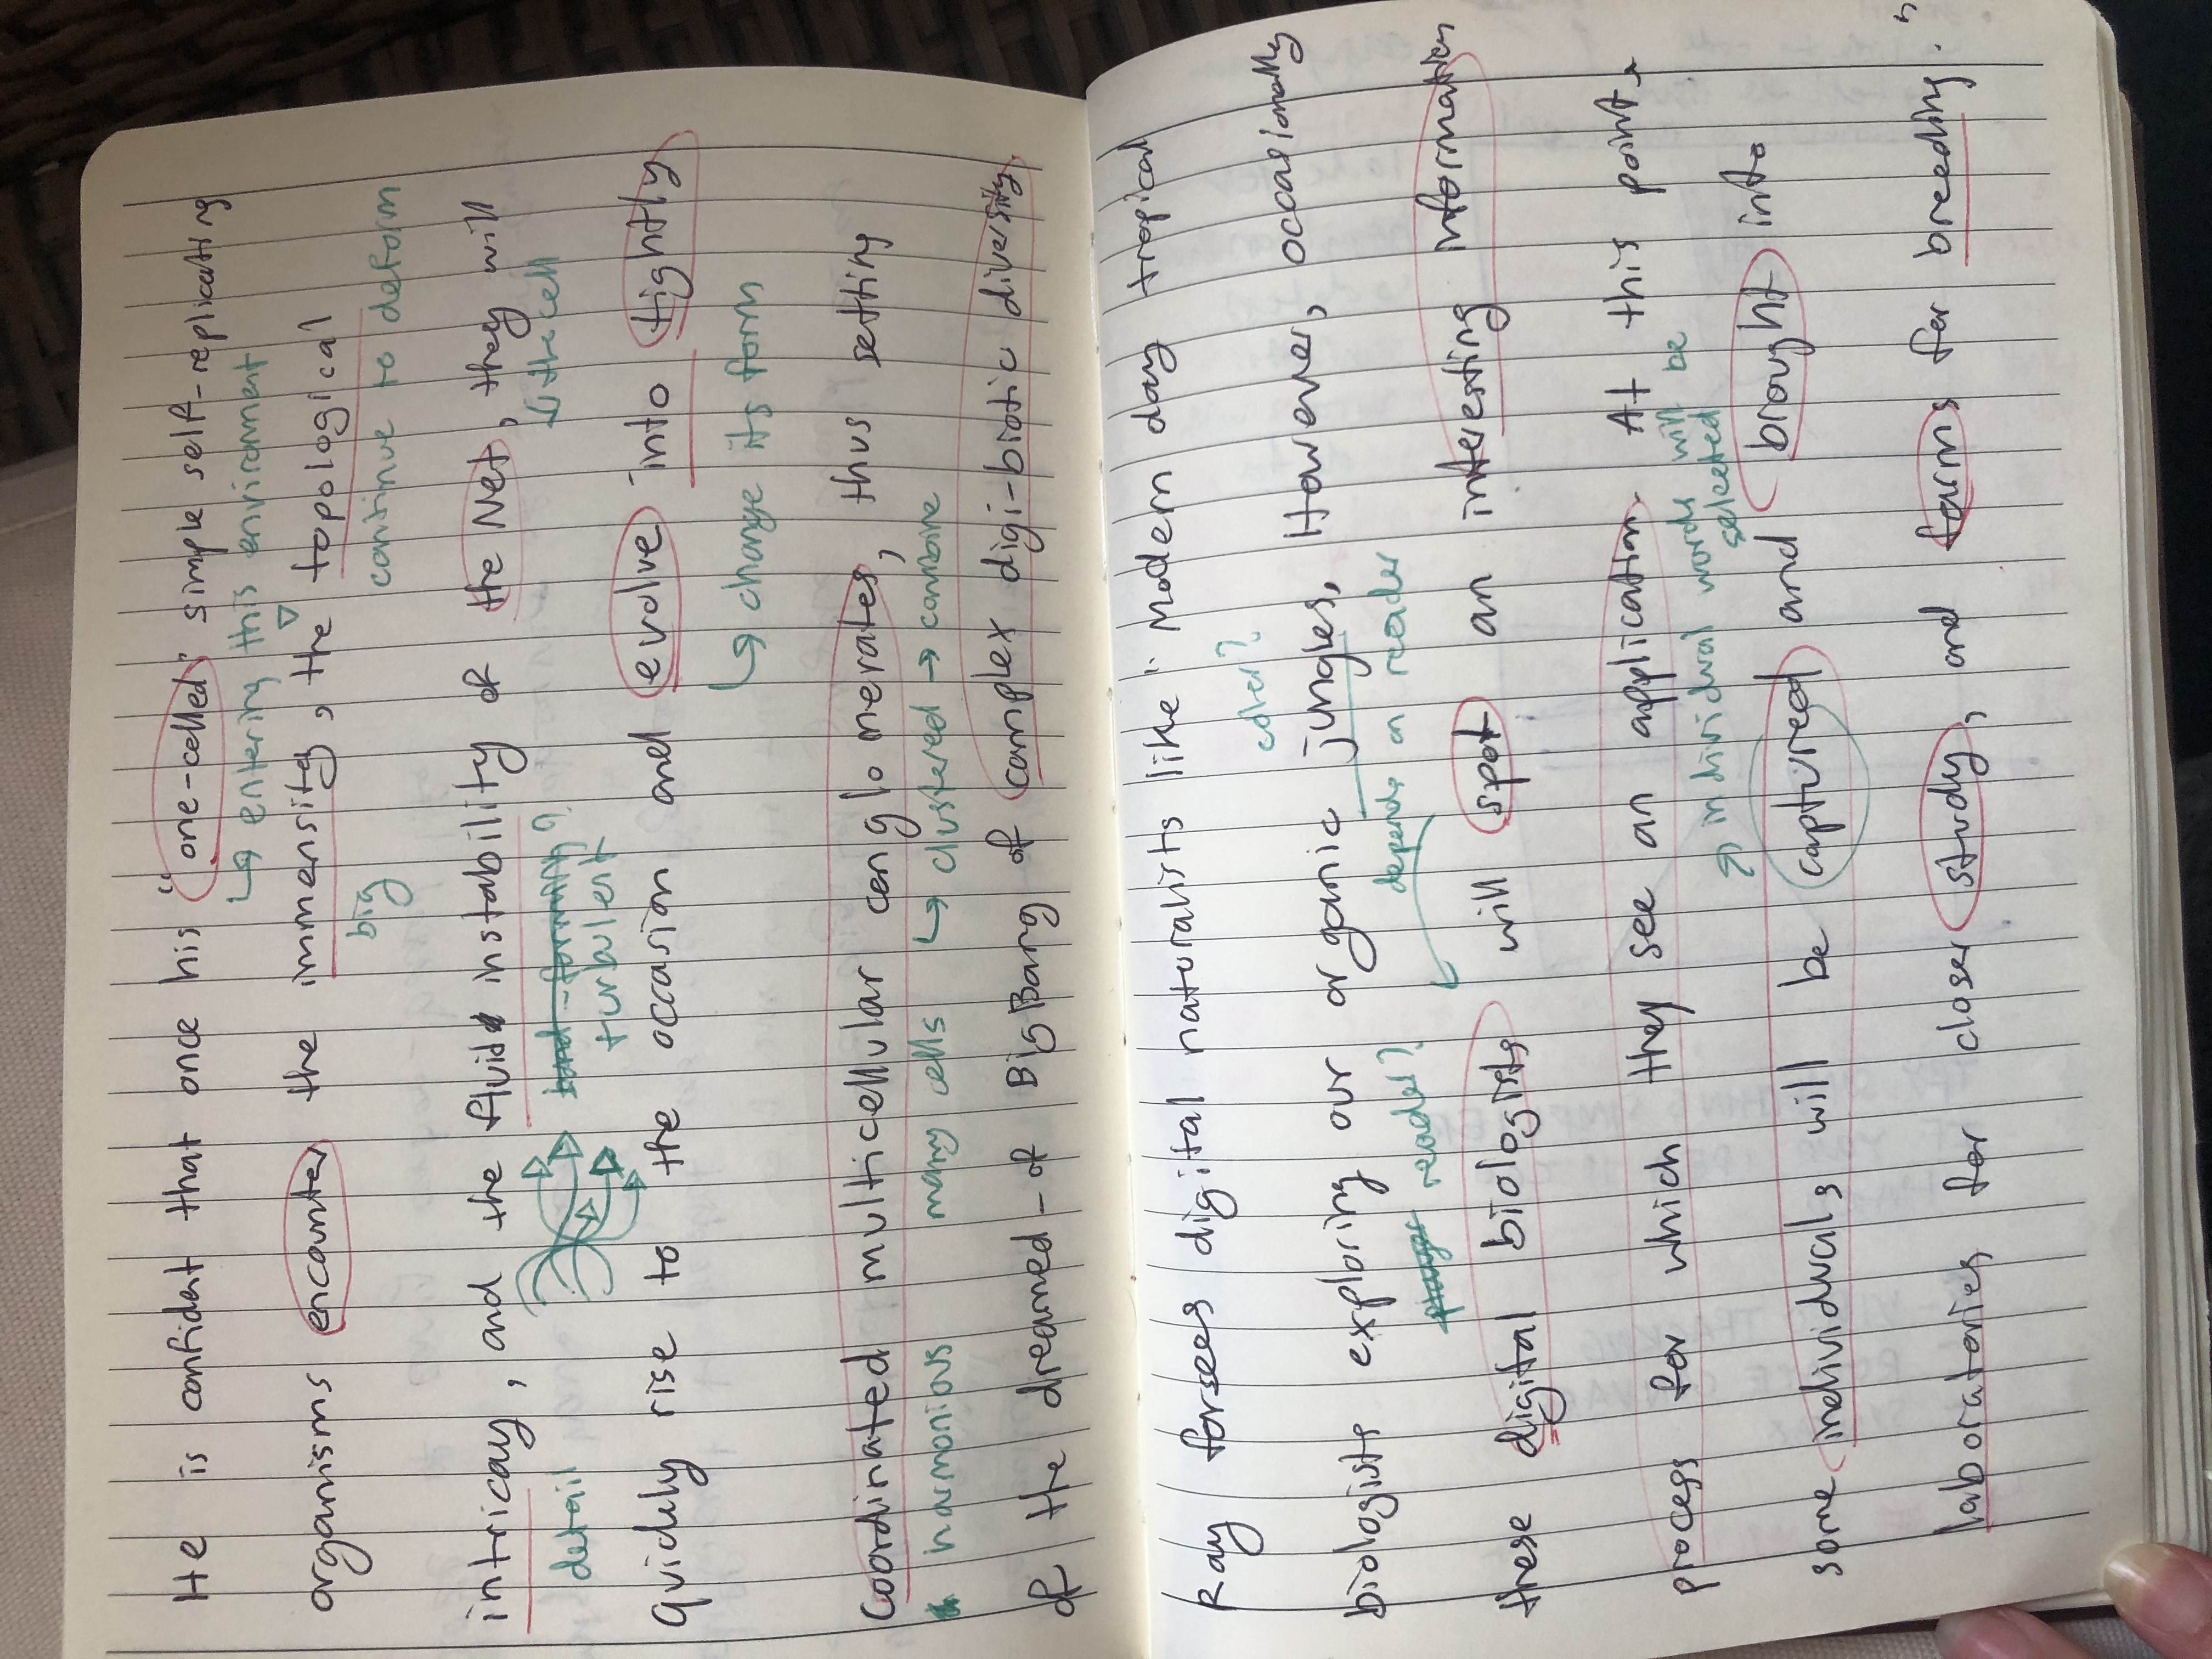 He is confident that once his "one-celled" simple self-replicating
↳ entering this environment
organisms encounter the immensity, the topological
big continue to deform
intricay, and the fluid instability of the Net, they will
detail turbulent ↓ the cell
quickly rise to the occasion and evolve into tightly
↳ change its form
Coordinated multicellular conglomerates, thus setting
harmonious many cells ↳ clustered → combine
of the dreamed-of Big Bang of complex digi-biotic diversity.
Ray forsees digital naturalists like "Modern day tropical
biologists exploring our organic jungles. However, occasionally
player reader? depends on reader
these digital biologists will spot an interesting information
process for which they see an application. At this point,
individual words will be
selected
some individuals will be captureed and brought into
laboratories for closer study, and farms for breeding."